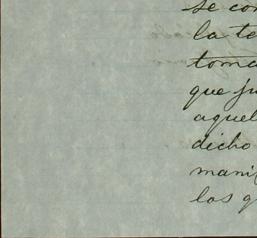 se con
la te
toma
que ju
aquel
dicho
mani
los q